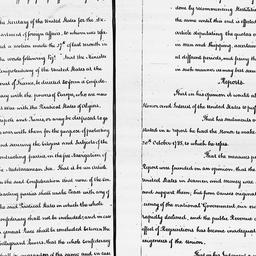 The Secretary of the United States for the De-
partment of foreign Affairs, to whom was refer-
red a motion made the 27th of last month in
the words following Vizt. That the Minister
Plenipotentiary of the United States at the
of France, be directed to form a confede-
racy with the powers of Europe, who are now
at war with the Piratical States of Algiers,
Tripoli and Tunis, or may be disposed to go
to war with them for the purpose of protecting
and securing the Citizens and Subjects of the
contracting parties, in the free navigation of
the Mediterranean Sea. That it be an article
in the said Confederation that none of the con-
tracting parties shall make Peace with any of
the said Piratical States in which the whole
confederacy shall not be included; and in case
a general Peace shall be concluded between the
Belligerent Powers, that the whole confederacy
shall be guarantees of the same and in case
done by recommending
the same until this end is effected
article stipulating the quotas
in men and Shipping,
at different periods, and fixing the
in such manner as may best
Reports.
That in his opinion it would
Honor and Interest of the United States to
That his sentiments
stated in a report he had the Honor to make
20th October 1785, to which he refers.
That the measure
Report was founded on an opinion, that the
United States in Seamen and money was
and support them; but from causes
ciency of the national Government, our
rapidly declined, and the public Revenue
effect of Requisitions has become inadequate
exigencies of the Union.
That in his Judgment